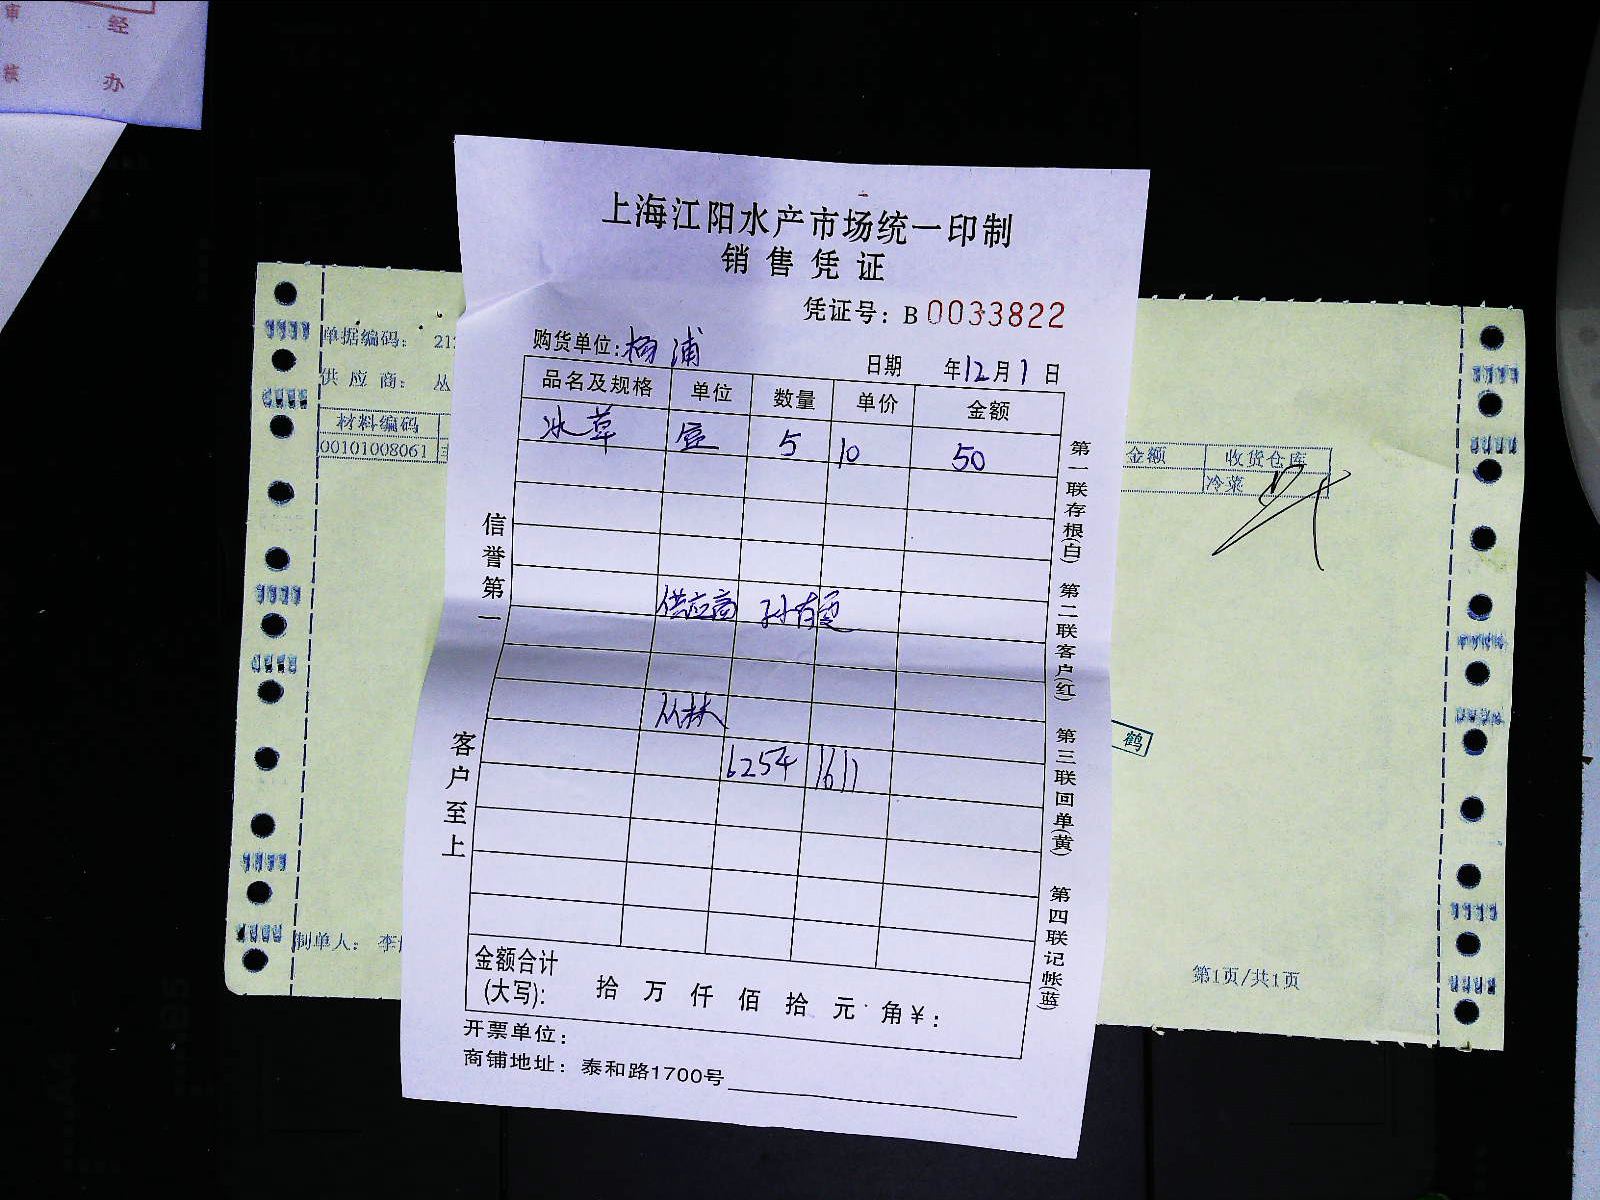 审 经
核 办
上海江阳水产市场统一印制
销售凭证
凭证号：B 0033822
购货单位:杨浦 日期 年12月1日
品名及规格 单位 数量 单价 金额
冰草 盒 5 10 50
供应商 孙有霞
丛林
6254 1611
金额合计
(大写): 拾 万 仟 佰 拾 元 角¥:
开票单位：
商铺地址：泰和路1700号
信誉第一
客户至上
第一联存根(白) 第二联客户(红) 第三联回单(黄) 第四联记帐(蓝)
单据编码： 21
供应商： 丛
材料编码
00101008061
金额 收货仓库
冷菜
鹤
制单人： 李
第1页/共1页